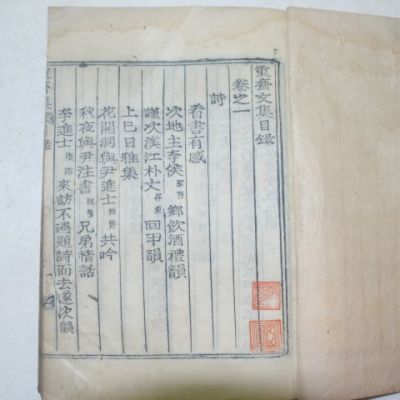 重齋文集目録
卷之一
詩
看書有感
次地主李侯鄉飮酒禮韻
謹次溪江朴丈回甲韻
上巳日雅集
花開洞與尹進士共吟
秋夜與尹注書兄弟情話
李進士來訪不遇題詩而去遂次韻